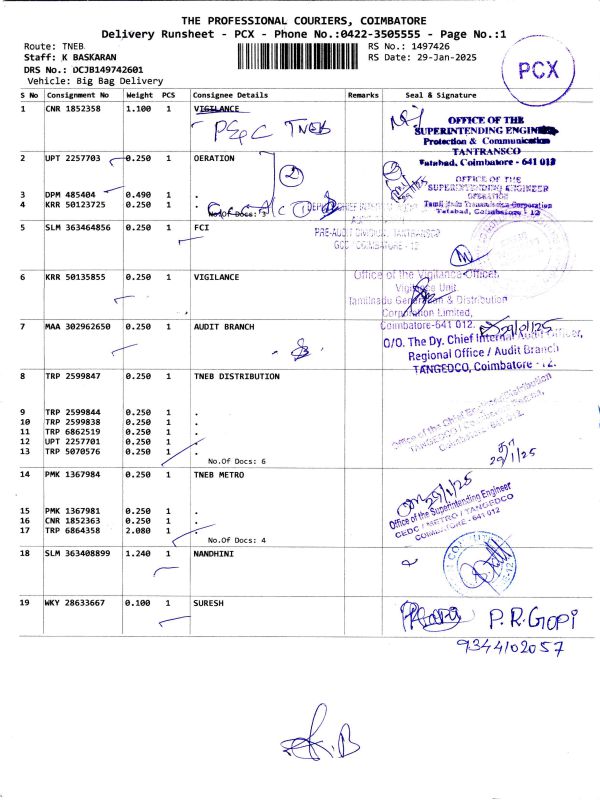 THE PROFESSIONAL COURIERS, COIMBATORE
Delivery Runsheet - PCX - Phone No.:0422-3505555 - Page No.:1
Route: TNEB
RS No.: 1497426
Staff: K BASKARAN
RS Date: 29-Jan-2025
DRS No.: DCJB149742601
Vehicle: Big Bag Delivery
PCX
S No Consignment No Weight PCS Consignee Details Remarks Seal & Signature
1 CNR 1852358 1.100 1 VIGILANCE
P&C TNEB
OFFICE OF THE
SUPERINTENDING ENGINEER
Protection & Communication
TANTRANSCO
Tatabad, Coimbatore - 641 012
2 UPT 2257703 0.250 1 OERATION
2
OFFICE OF THE
SUPERINTENDING ENGINEER
OPERATION
Tamil Nadu Transmission Corporation
Tatabad, Coimbatore - 12
3 DPM 485404 0.490 1 .
4 KRR 50123725 0.250 1 .
No.of Docs: 3
5 SLM 363464856 0.250 1 FCI
PRE-AUDIT DIVISION, TANTRANSCO
COIMBATORE - 12
6 KRR 50135855 0.250 1 VIGILANCE
Office of the Vigilance Officer,
Vigilance Unit,
Tamilnadu Generation & Distribution
Corporation Limited,
Coimbatore-641 012.
7 MAA 302962650 0.250 1 AUDIT BRANCH
29/01/25
O/O. The Dy. Chief Internal Audit Officer,
Regional Office / Audit Branch
TANGEDCO, Coimbatore - 12.
8 TRP 2599847 0.250 1 TNEB DISTRIBUTION
Office of the Chief Engineer/Distribution
Coimbatore 641 012.
9 TRP 2599844 0.250 1 .
10 TRP 2599838 0.250 1 .
11 TRP 6862519 0.250 1 .
12 UPT 2257701 0.250 1 .
13 TRP 5070576 0.250 1 .
No.Of Docs: 6
29/1/25
14 PMK 1367984 0.250 1 TNEB METRO
29/1/25
Office of the Superintending Engineer
CEDC / METRO / TANGEDCO
COIMBATORE - 641 012
15 PMK 1367981 0.250 1 .
16 CNR 1852363 0.250 1 .
17 TRP 6864358 2.080 1 .
No.Of Docs: 4
18 SLM 363408899 1.240 1 NANDHINI
19 WKY 28633667 0.100 1 SURESH
P.R.Gopi
9344102057